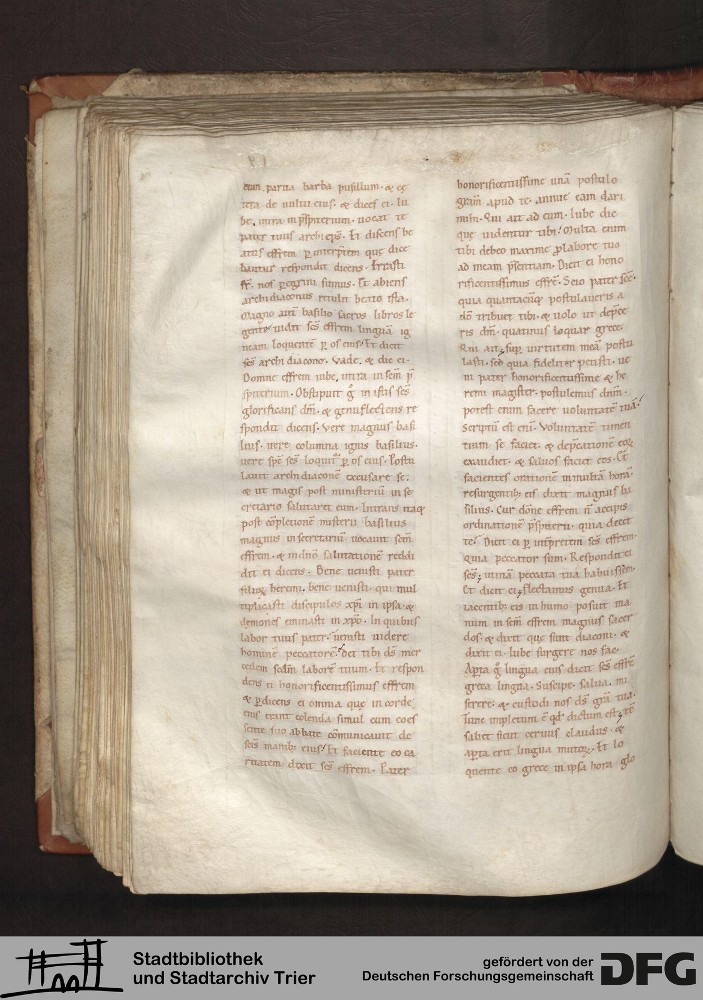 eum. parua barba pusillum. & ex
tera de uultu eius. & dices ei. Iu
be. intra in p̄sp̄iterium. uocat te
pater tuus archi ep̄s. Et discens be
atus effrem p̱ interp̄tem quę dice
bantur respondit dicens. Errasti
fr̄. nos p̱egrini sumus. Et abiens
archidiaconus retulit beato ista.
Magno aut̄ basilio sacros libros le
gente uidit sc̄s effrem linguā ig
neam loquentē p̱ os eius. Et dicit
sc̄s archidiacono. Vade. & die ei.
Domne effrem iube. intra in sc̄m p̄
sp̄iterium. Obstipuit ḡ in istis sc̄s
glorificans dm̄. & genu flectens re
spondit dicens. Vere magnus basi
lius. uere columna ignis basilius.
uere sp̄c sc̄s loquit̄ p̱ os eius. Postu
lauit archidiaconē excusare se.
& ut magis post ministeriū in se
cretario salutaret eum. Intrans itaq̄
post cōpletionē misterii basilius
magnus in secretariū uocauit sc̄m
effrem. & in dn̄o salutationē reddi
dit ei dicens. Bene uenisti pater
filioꝝ heremi. bene uenisti. qui mul
tiplicasti discipulos xp̄i in ipsa. &
demones eminasti in xp̄o. In quibus
labor tuus pater. uenisti uidere
hominē peccatorē. Det tibi dn̄s mer
cedem sc̄dm laborē tuum. Et respon
dens ei honorificentissimus effrem
& p̱dicens ei omnia que in corde
eius erant colenda simul cum coes
sente suo abbate cōmunicauit de
sc̄is manib; eius. Et faciente eo ca
ritatem dixit sc̄s effrem. Pater
honorificentissime unā postulo
grām apud te. annue eam dari
mihi. Qui ait ad eum. Iube dic
quę uidentur tibi. Multa enim
tibi debeo maxime p̱labore tuo
ad meam p̄sentiam. Dicit ei hono
rificentissimus effrē. Scio pater sc̄e.
quia quantacūq̄ postulaueris a
dō tribuet tibi. & uolo ut dep̄ce
ris dm̄. quatinus loquar grece.
Qui ait. Sup̱ uirtutem meā postu
lasti. sed quia fideliter petisti. ue
ni pater honorificentissime & he
remi magister. postulemus dnm̄.
potest enim facere uoluntatē tuā.
Scriptū est eni. Voluntatē timen
tium se faciet. & dep̄cationē eoꝝ
exaudiet. & saluos faciet eos. Et
facientes orationē in multā horā.
resurgentib; eis dixit magnus ba
silius. Cur dōne effrem n̄ accipis
ordinationē p̄sp̄iterii. quia decet
te. Dicit ei p̱ int̄p̄retem sc̄s effrem.
Quia peccator sum. Respondit ei
sc̄s. utinā peccata tua habuissem.
Et dicit ei. flectamus genua. Et
iacentib; eis in humo posuit ma
num in sc̄m effrem magnus sacer
dos. & dixit que sunt diaconi. &
dixit ei. Iube surgere nos fac.
Ap̱ta ḡ lingua eius dicit sc̄s effrē
greca lingua. Suscipe. salua. mi
serere. & custodi nos ds̄ grā tua.
Tunc impletum ē qd̄ dictum est. Tc̄
saliet sicut ceruus claudus. &
ap̱ta erit lingua mutoꝝ. Et lo
quente eo grece in ipsa hora glo
Stadtbibliothek
und Stadtarchiv Trier
gefördert von der
Deutschen Forschungsgemeinschaft
DFG